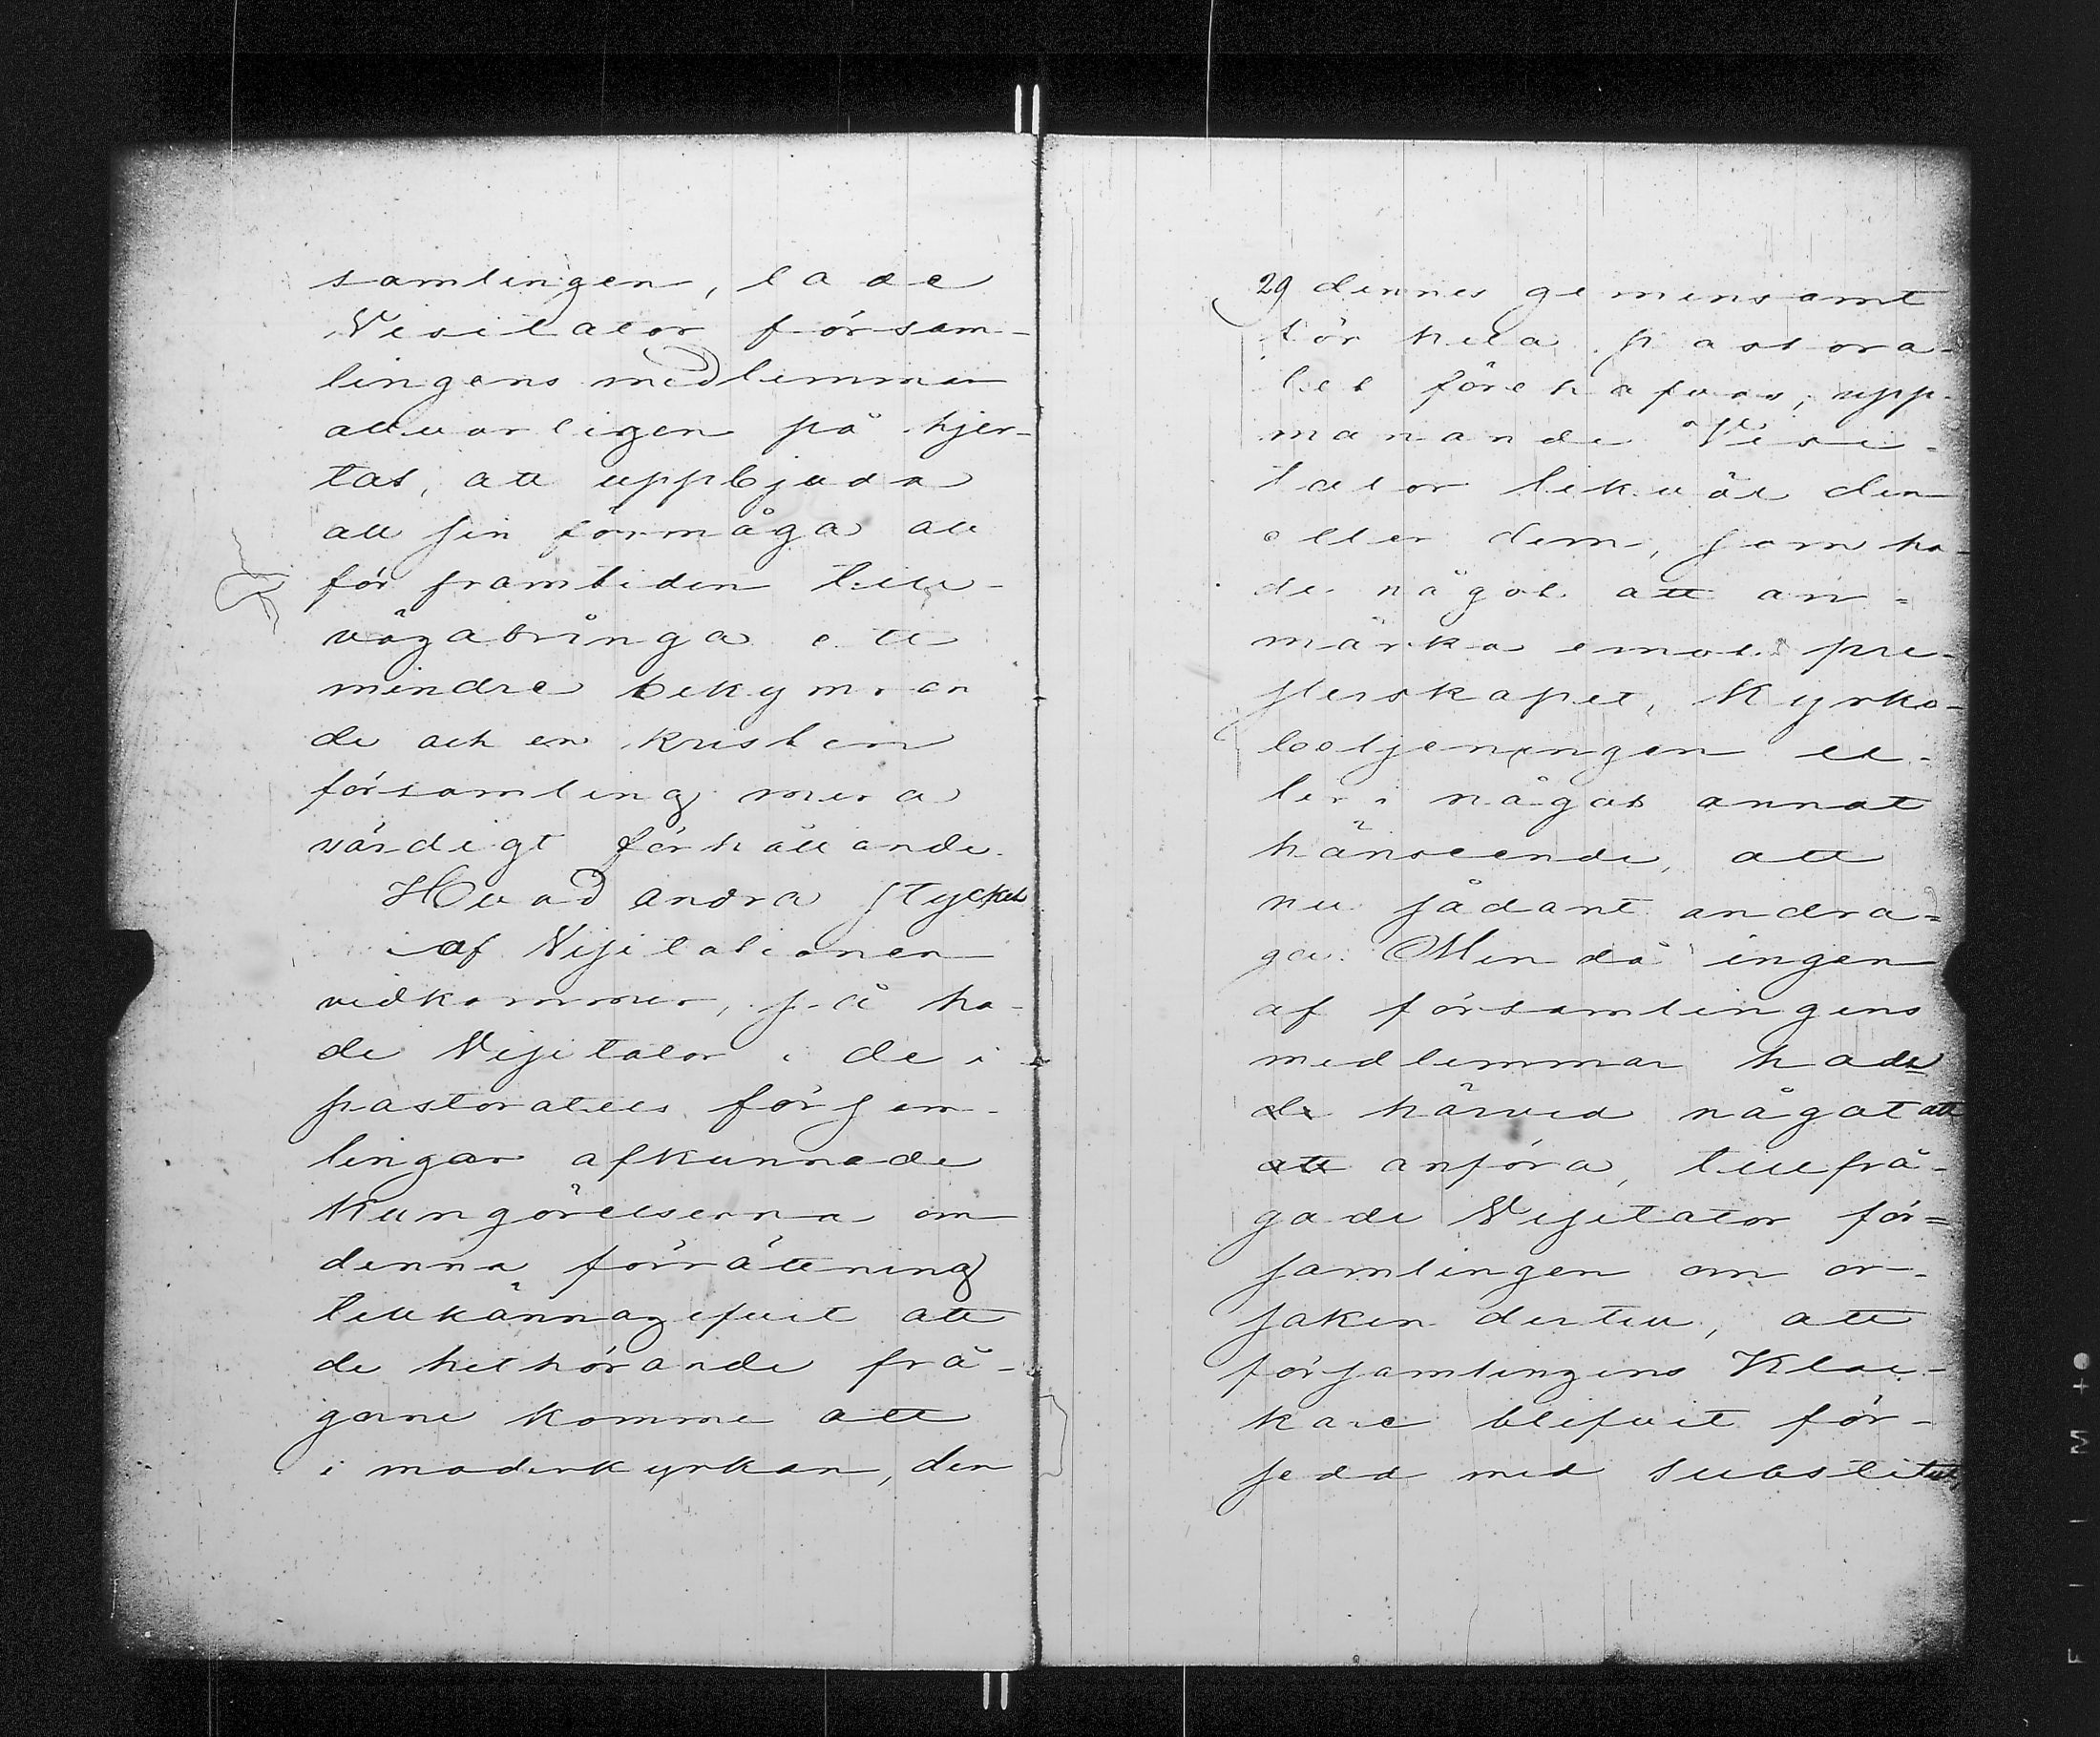 samlingen, lade
Visitator försam-
lingens medlemmar
allvarligen på hjer-
tat, att uppbjuda
all sin förmåga att
för framtiden till-
vägabringa ett
mindre bekymran
de och en kristen
församling mera
värdigt förhållande.
Hvad andra stycket
af Visitationen
vidkommer, så ha-
de Visitator i de i
pastoratets försam-
lingar afkunnade
Kungörelserna om
denna förrättning
tillkännagifvit att
de hithörande frå-
gorne komme att
i moderkyrkan, den
29 dennes gemensamt
för hela pastora-
tet förehafvas, upp-
manande Visi-
tator likväl den
eller dem, som ha-
de något att an-
märka emot pre-
sterskapet, Kyrko-
betjeningen el-
ler i något annat
hänseende, att
nu sådant andra-
ga. Men då ingen
af församlingens
medlemmar hade
de härvid något att
att anföra, tillfrå-
gade Visitator för-
samlingen om or-
saken dertill, att
församlingens Kloc-
kare blifvit för-
sedd med substitut,